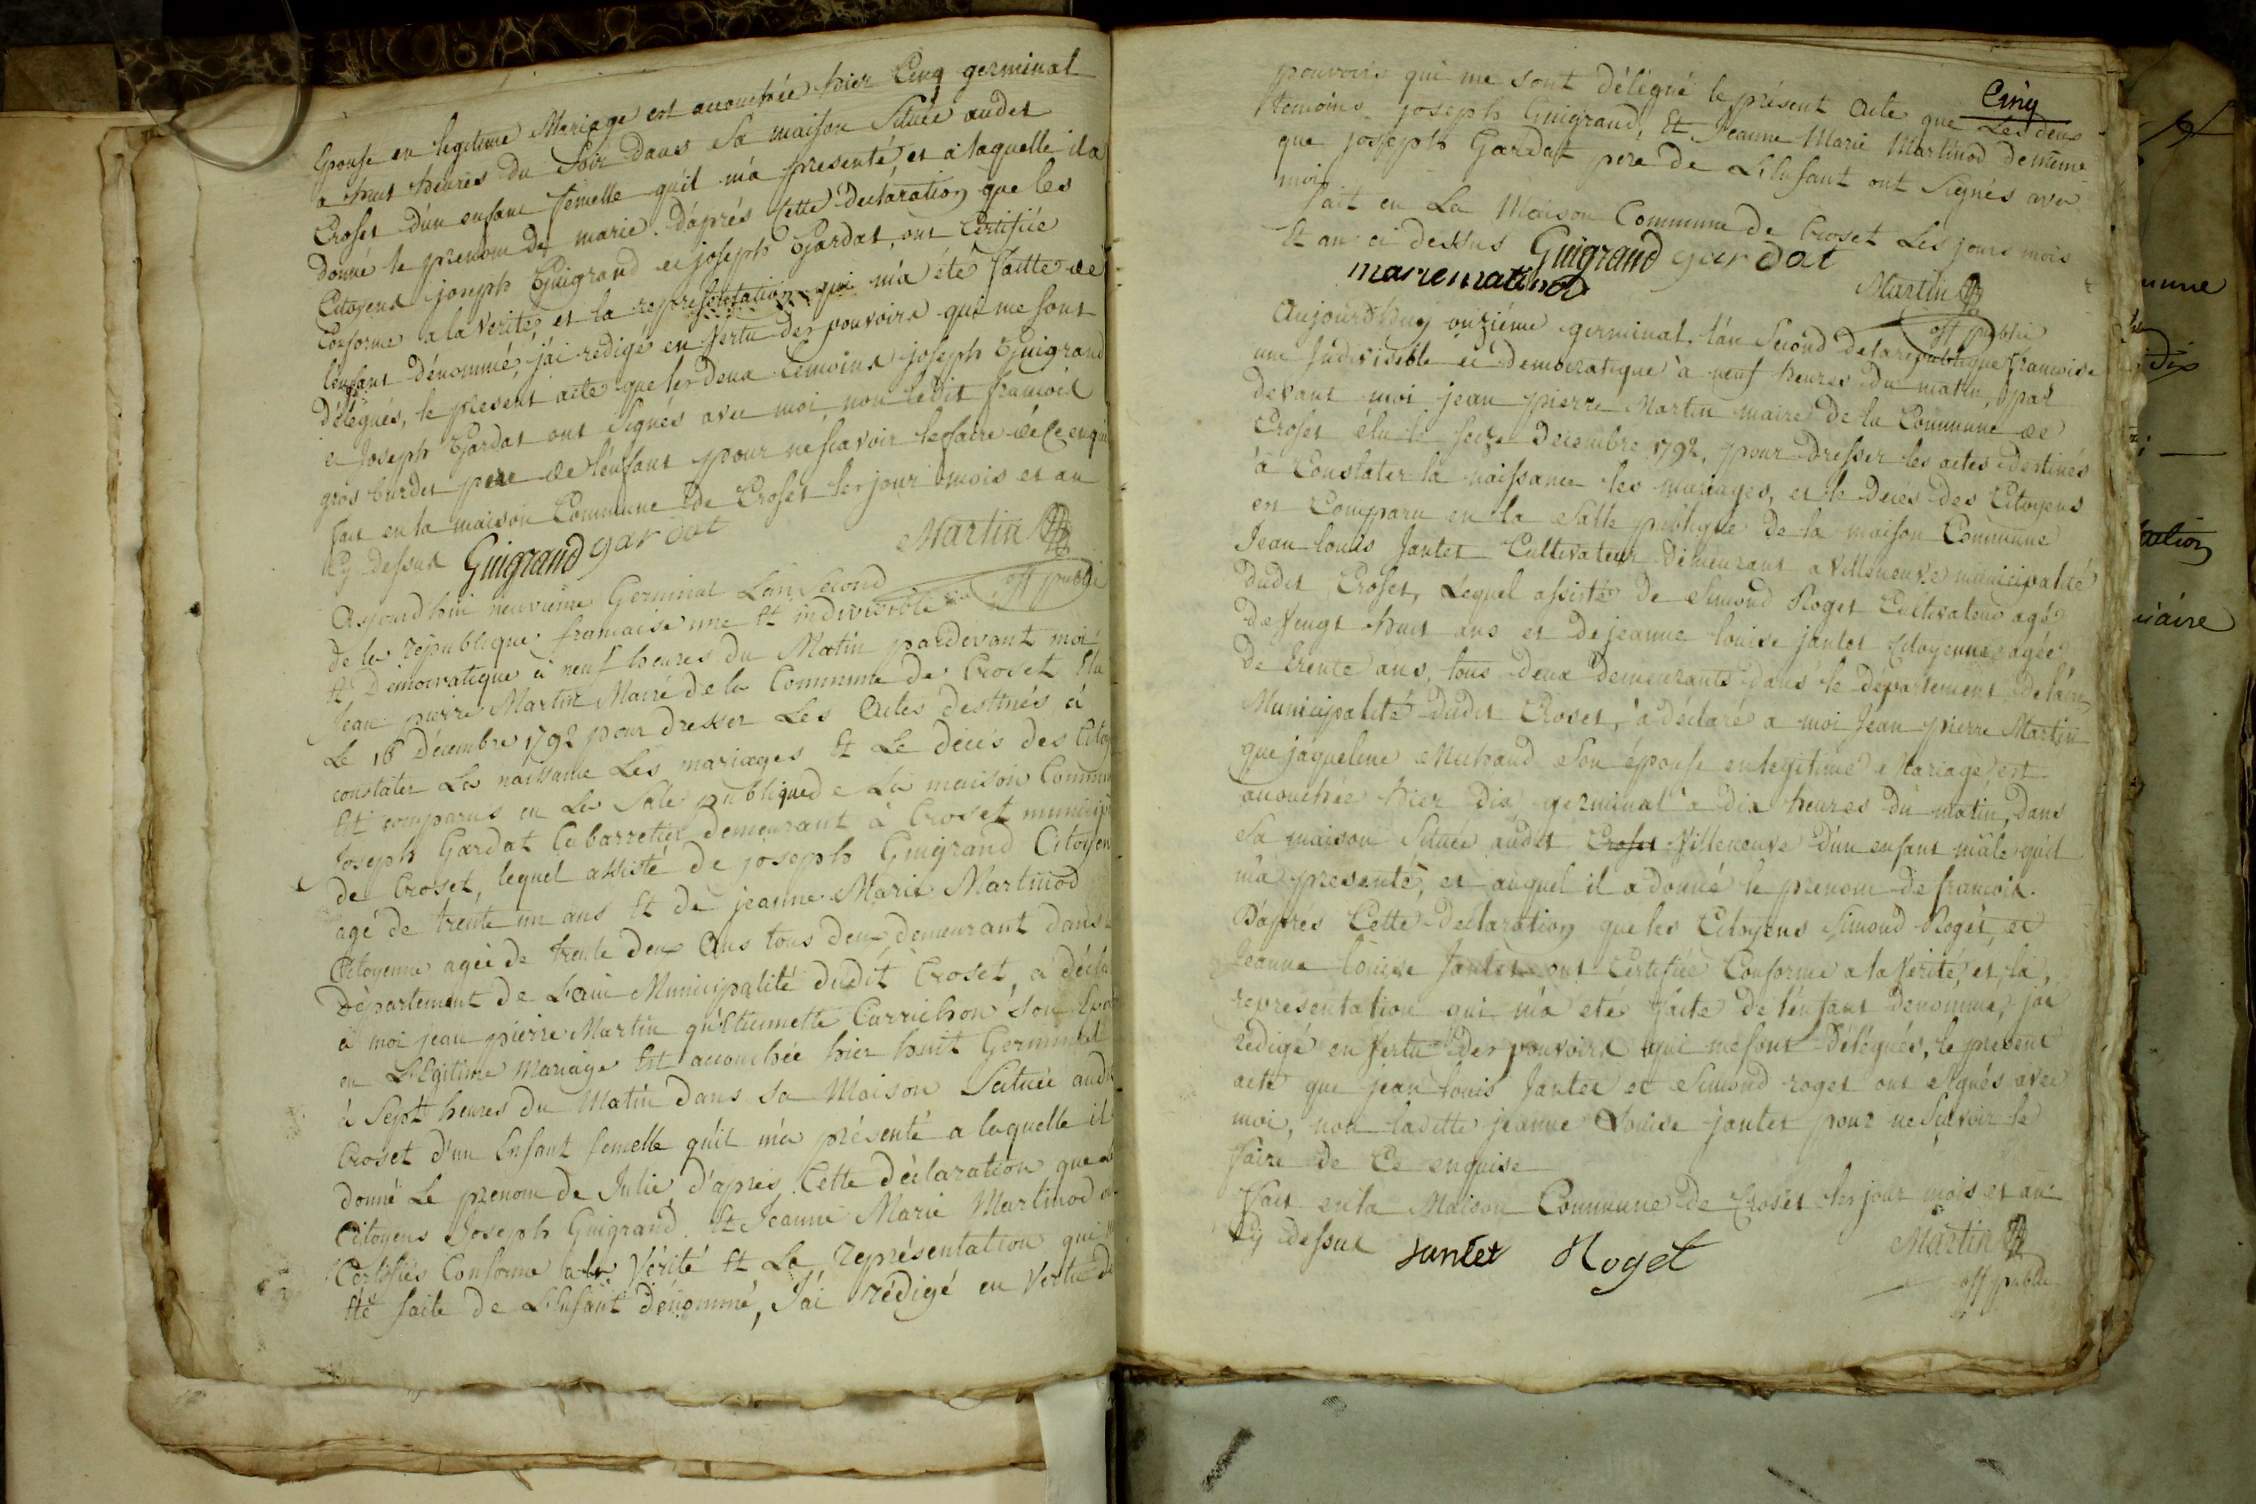 Epouse en legitime Mariage est accouchée hier Cinq germinal
a huit heures du Soir dans sa maison Située audit
Croset d'un enfant femelle qu'il m'a presenté et a laquelle il a
donné le prenom de marie. d'aprés cette declaration que les
Citoyens joseph Guigrand et joseph Gardat, ont Certifiée
Conforme a la verité, et la représentation qui m'a été faitte de
l'enfant dénommé, j'ai redigé en vertu des pouvoirs qui me sont
délégués, le present acte que les deux temoins joseph Guigrand
et Joseph Gardat ont Signés avec moi, non ledit francois
gros burdet pere de l'enfant pour ne scavoir le faire de ce enqui
fait en la maison Commune de Croset les jour mois et an
Cy dessus Guigrand gardat Martin
off public
Aujourdhui neuvieme Germinal L'an Second
de la République francaise une Et indivisible
Et Démocratique à neuf heures du Matin pardevant moi
Jean pierre Martin Maire de la Commune de Croset Elu
Le 16 Décembre 1792 pour dresser Les Actes destinés à
constater La naissance Les mariages Et Le décés des Citoy
Est comparus en La Sale publique de La maison Commu
Joseph Gardat Cabarretier demeurant à Croset municip
de Croset, lequel assisté de joseph Guigrand Citoyen
agé de trente un ans Et de jeanne Marie Martinod
Citoyenne agée de trente deux Ans tous deux demeurant dans
Département de L'ain Municipalité dudit Croset, a décla
à moi jean pierre Martin qu'Etiennette Carrichon Son Epou
en Légitime Mariage Est accouchée hier huit Germinal
à Sept heures du Matin dans Sa Maison Scituée audi
Croset d'un Enfant femelle qu'il m'a présenté a laquelle il
donné Le prenom de Julie d'après Cette déclaration que
Citoyens Joseph Guigrand Et Jeanne Marie Martinod
Certifiés Conforme a la Vérité Et La Représentation qui
Eté faite de L'Enfant dénommé, J'ai rédigé en Vertu de
Cinq
pouvoirs qui me sont délégué le présent Acte que Les deux
temoins joseph Guigrand, Et Jeanne Marie Martinod de même
que joseph Gardat pere de L'Enfant ont Signés avec
moi
fait en La Maison Commune de Croset Les jours mois
Et an ci dessus Guigrand gardat
marie matinod Martin
off public
Aujourd'huy onzieme germinal l'an Second de la république francoise
une Indivisible et democratique à neuf heures du matin, par
devant moi jean pierre Martin maire de la Commune de
Croset élu le seize Decembre 1792, pour dresser les actes destinés
à Constater la naissance les mariages, et le decés des Citoyens
est Comparu en la Salle publique de la maison Commune
Jean louis Jantet Cultivateur demeurant a Villeneuve municipalité
dudit Croset, Lequel assisté de Simond Roget Cultivateur agé
de vingt huit ans et de jeanne louise jantet Citoyenne agée
de trente ans, tous deux demeurants dans le département de l'ain
Municipalité dudit Croset, a déclaré a moi Jean pierre Martin
que jaqueline Muhaud Son épouse en legitime Mariage est
accouchée hier dix germinal a dix heures du matin, dans
Sa maison Située audit Croset Villeneuve d'un enfant mâle qu'il
m'a presenté, et auquel il a donné le prenom de francois.
D'aprés Cette declaration que les Citoyens Simond Roget, et
Jeanne louise Jantet ont Certifiée Conforme a la verité, et la
representation qui m'a eté faite de l'enfant dénommé, j'ai
redigé en vertu des pouvoirs qui me sont délégués, le present
acte que jean louis Jantet et Simond roget ont signés avec
moi, non ladette jeanne Louise jantet pour ne scavoir le
faire de ce enquise
Fait en la Maison Commune de Croset les jour mois et an
Cy dessus jantet Roget Martin
off public